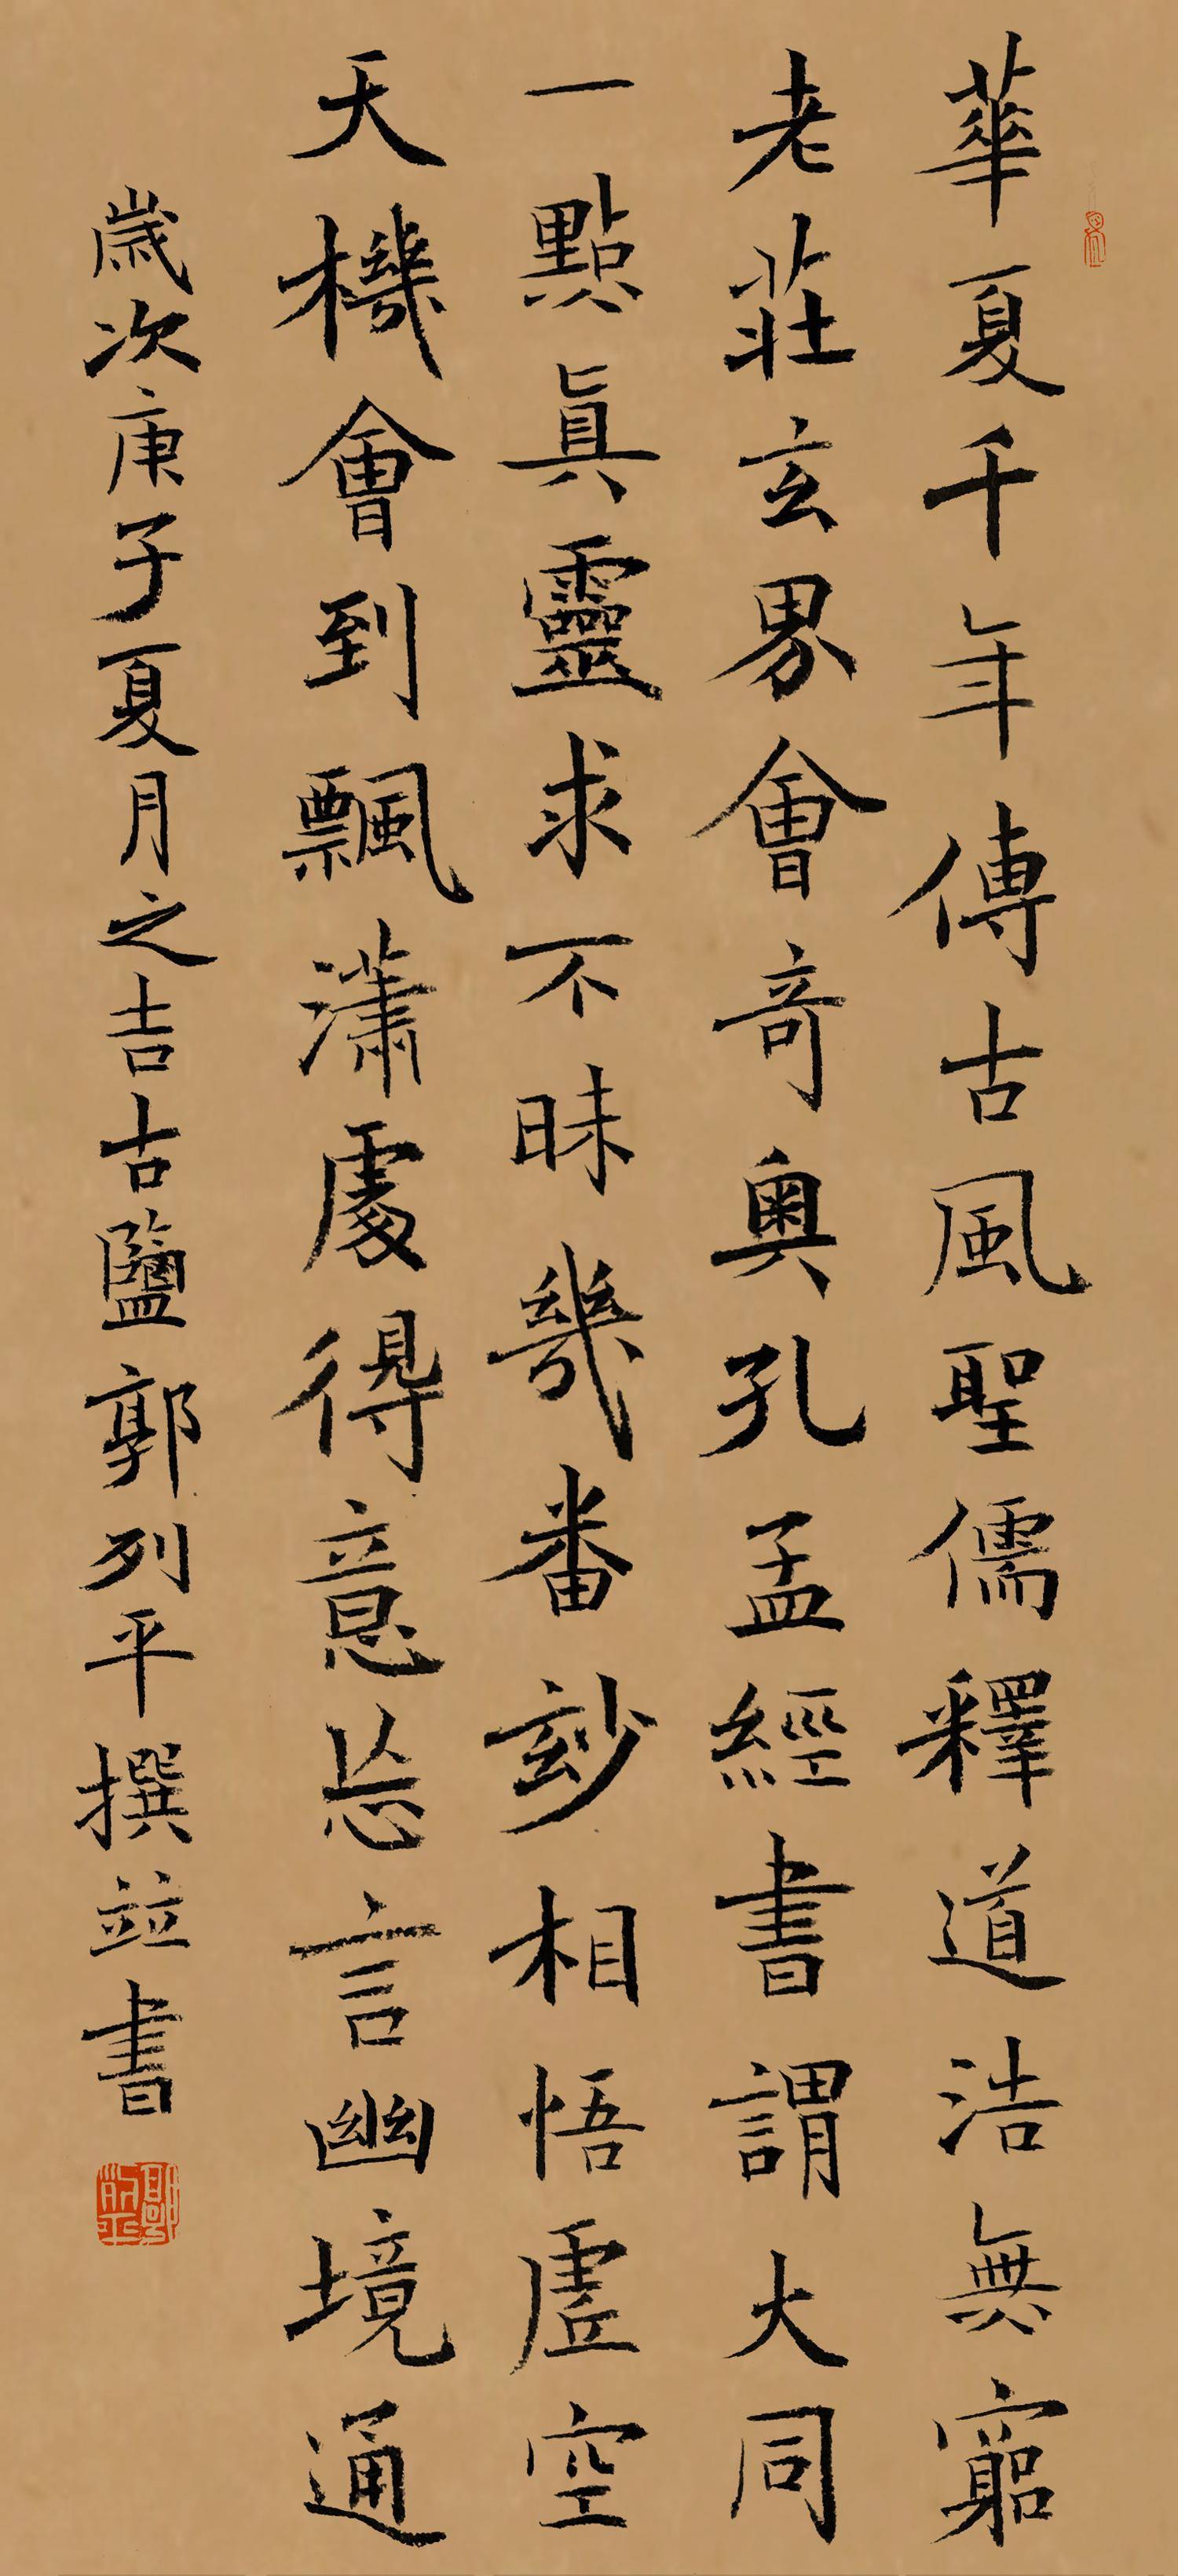 華夏千年傳古風聖儒釋道浩無窮
老莊玄界會奇奧孔孟經書謂大同
一點眞靈求不昧幾番玅相悟虛空
天機會到飄瀟處得意忘言幽境通
歲次庚子夏月之吉古鹽郭列平撰竝書